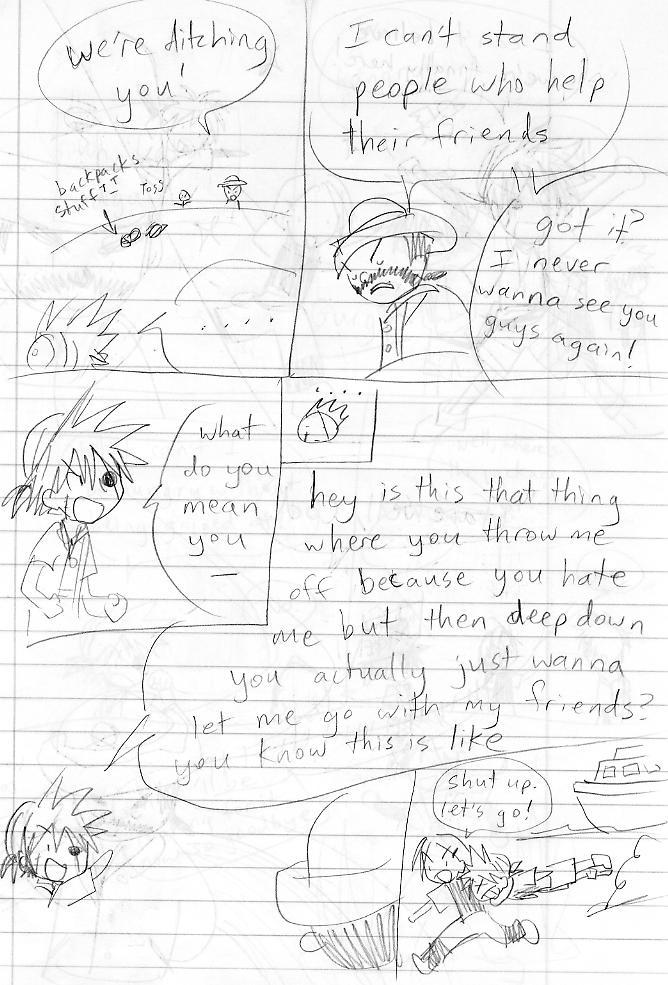 we're ditching
you!
backpacks
stuff
Toss
. . . .
I can't stand
people who help
their friends
got it?
I never
wanna see you
guys again!
what
do you
mean
you
—
. . . .
hey is this that thing
where you throw me
off because you hate
me but then deep down
you actually just wanna
let me go with my friends?
you know this is like
shut up.
let's go!